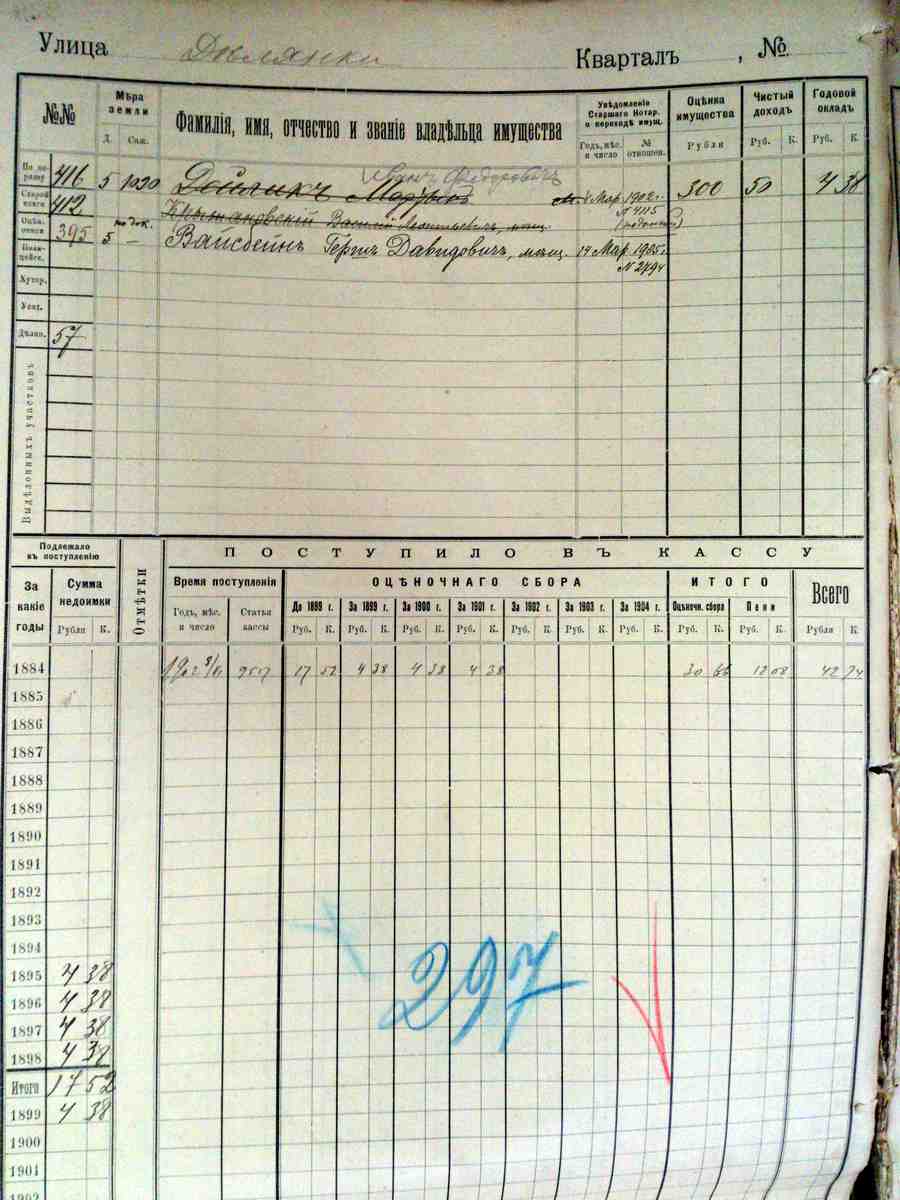 Улица Дѣлянки Кварталъ , №
№№ Мѣра земли Фамилія, имя, отчество и званіе владѣльца имущества Увѣдомленіе Старшаго Нотар. о переходѣ имущ. Оцѣнка имущества Чистый доходъ Годовой окладъ
Д. Саж. Годъ, мѣс. и число № отношен. Рубли Руб. К. Руб. К.
Иванъ Федоровичъ
416 5 1020 8 Мар. 1902 г. 300 50 4 38
Старой книги 412 Крыжановскій Василій мѣщ. № 4115
Оцѣн. описи 395 5 — Вайсбейнъ Герш Давидовичъ, мѣщ. 14 Мар. 1905 г.
Полицейск. № 2794
Хутор.
Усат.
Дѣлян. 57
Выдѣленныхъ участковъ
Подлежало къ поступленію Отмѣтки ПОСТУПИЛО ВЪ КАССУ
За какіе годы Сумма недоимки Время поступленія ОЦѢНОЧНАГО СБОРА ИТОГО Всего
Годъ, мѣс. и число Статья кассы До 1899 г. За 1899 г. За 1900 г. За 1901 г. За 1902 г. За 1903 г. За 1904 г. Оцѣночн. сбора Пени
Рубли К. Руб. К. Руб. К. Руб. К. Руб. К. Руб. К. Руб. К. Руб. К. Руб. К. Руб. К. Рубли К.
1884 1902 17 52 4 38 4 38 4 38 30 66 12 08 42 74
1885
1886
1887
1888
1889
1890
1891
1892
1893
1894
1895 4 38
297
1896 4 38
1897 4 38
1898 4 38
Итого 17 52
1899 4 38
1900
1901
1902